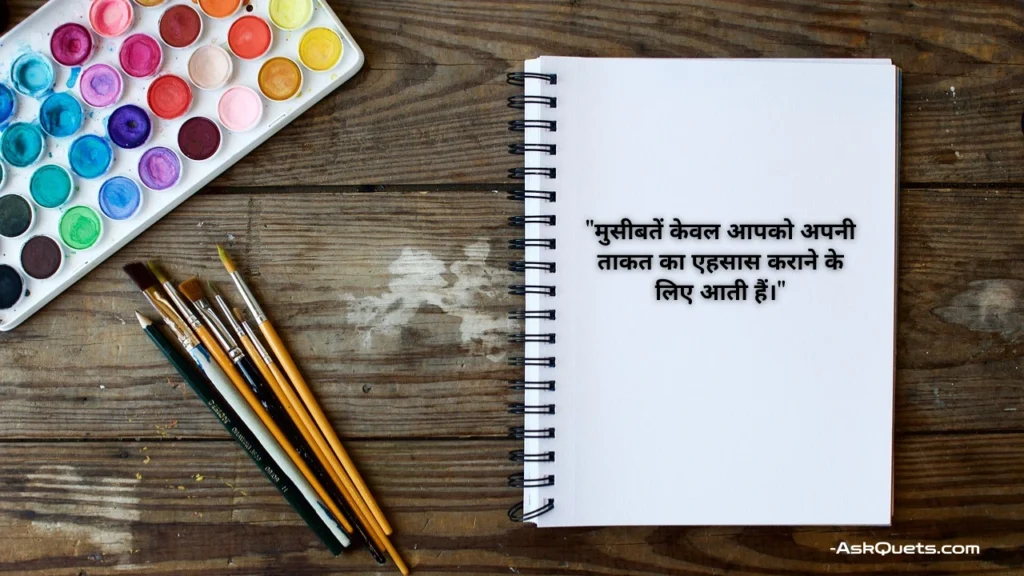 "मुसीबतें केवल आपको अपनी
ताकत का एहसास कराने के
लिए आती हैं।"
-AskQuets.com